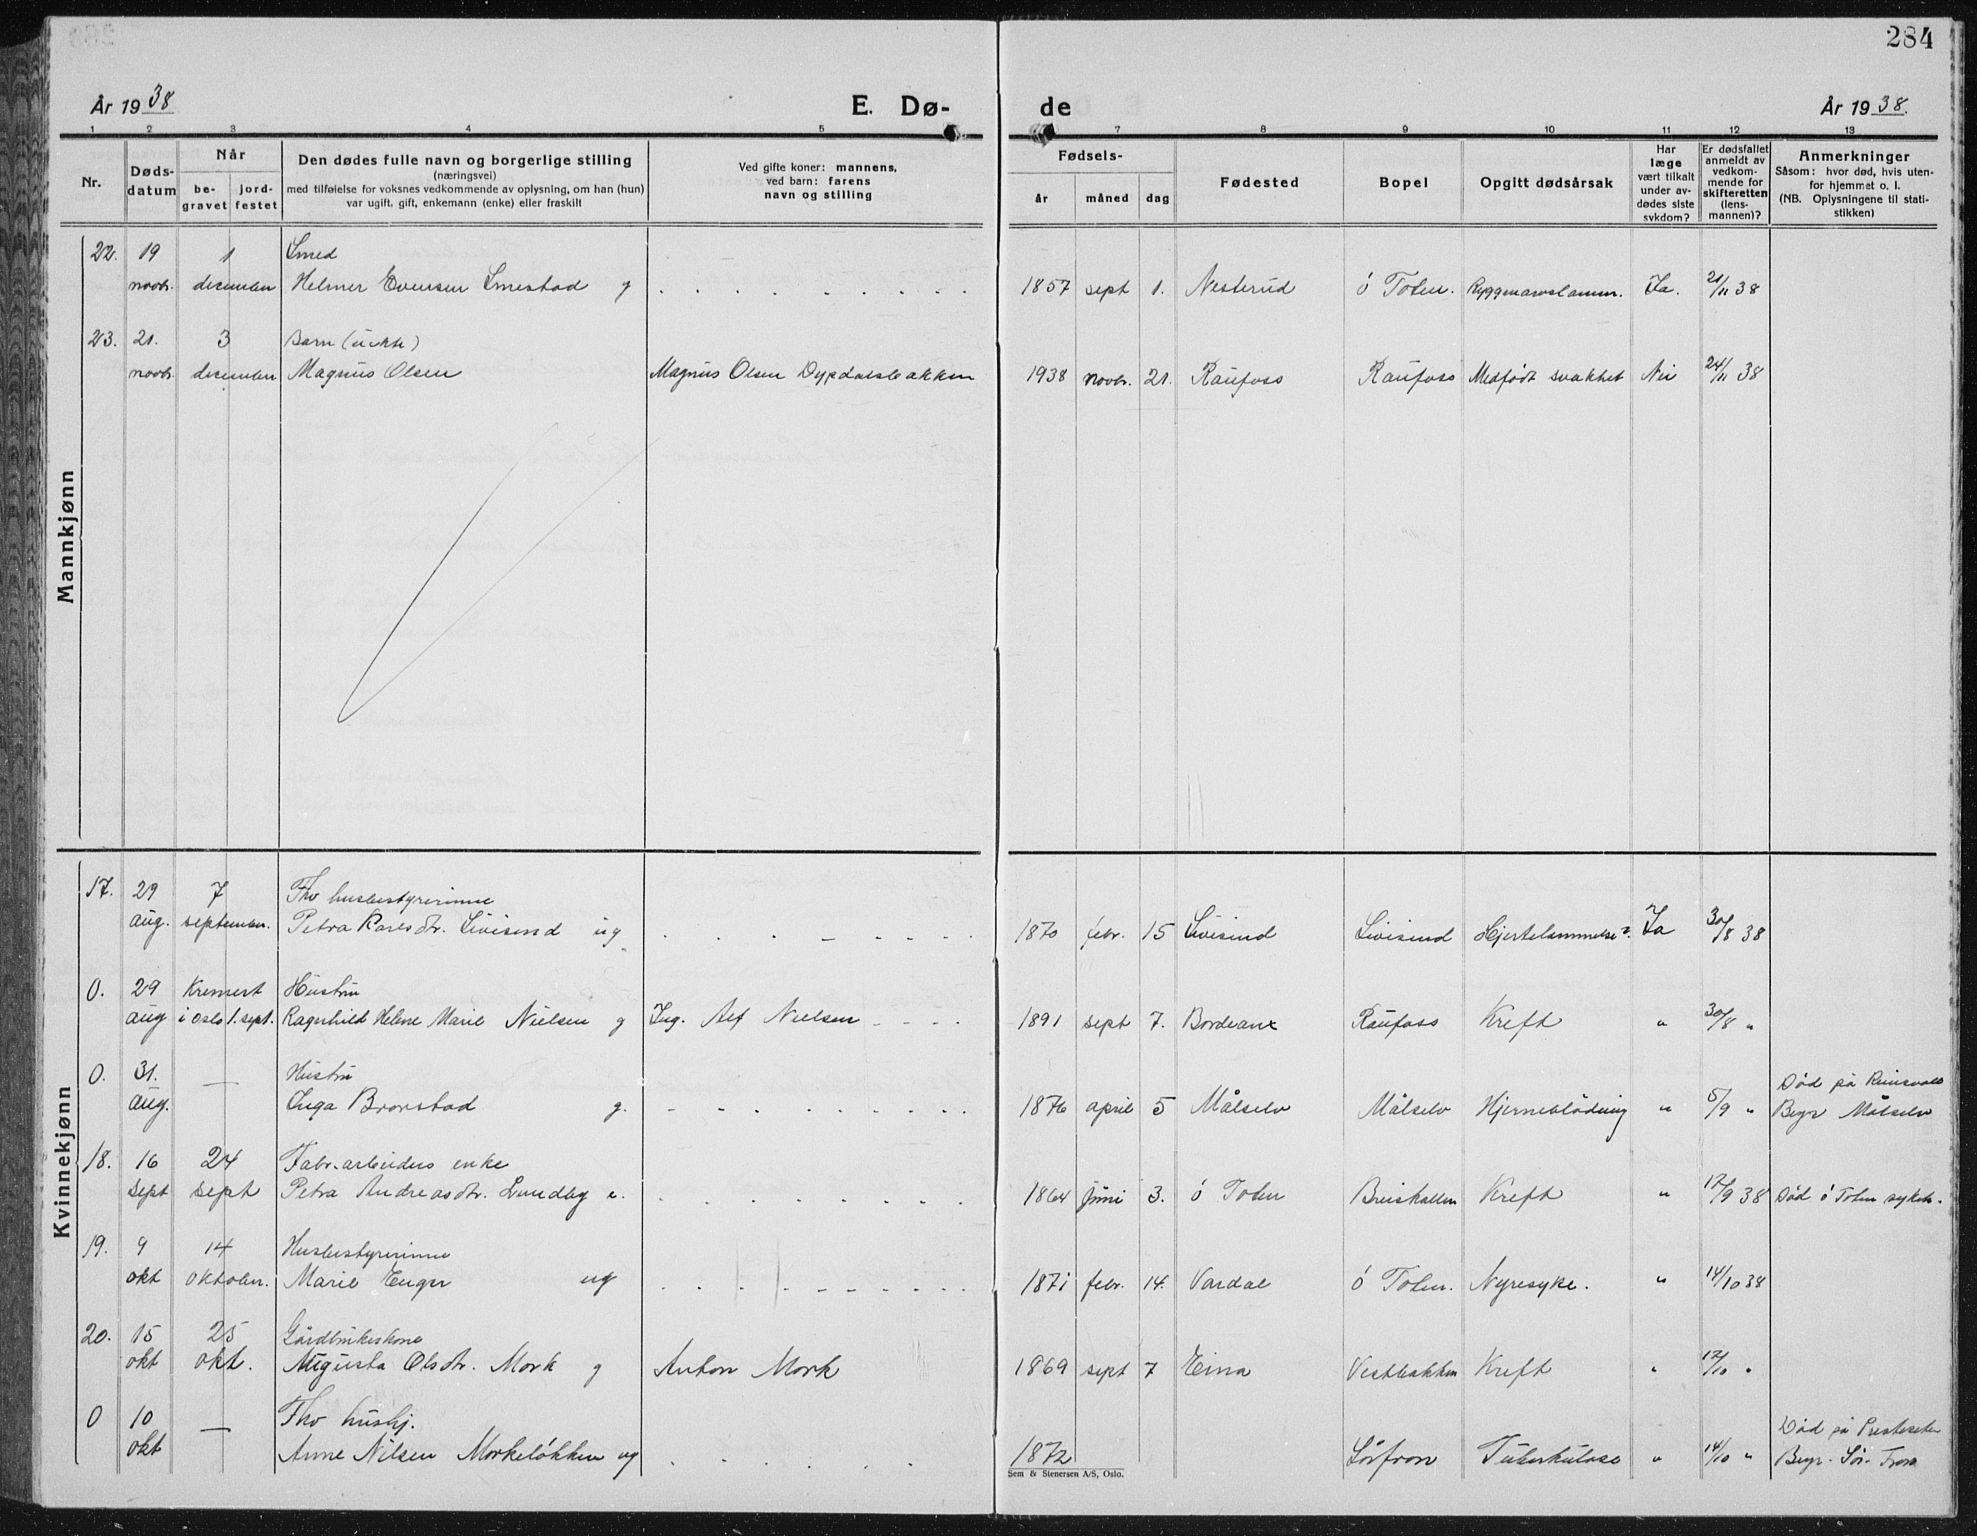 284
År 19 38
E. Dø-
de
År 19 38.
1 2 3 4 5 7 8 9 10 11 12 13
Nr.
Døds-
datum
Når
be-
gravet
jord-
festet
Den dødes fulle navn og borgerlige stilling
(næringsvei)
med tilføielse for voksnes vedkommende av oplysning, om han (hun)
var ugift, gift, enkemann (enke) eller fraskilt
Ved gifte koner: mannens,
ved barn: farens
navn og stilling
Fødsels-
år måned dag
Fødested
Bopel
Opgitt dødsårsak
Har
læge
vært tilkalt
under av-
dødes siste
sykdom?
Er dødsfallet
anmeldt av
vedkom-
mende for
skifteretten
(lens-
mannen)?
Anmerkninger
Såsom: hvor død, hvis uten-
for hjemmet o. l.
(NB. Oplysningene til stati-
stikken)
Mannkjønn
22. 19 1 Smed
novbr. desember Helmer Evensen Smestad g 1857 sept 1. Nesterud ö Toten. Ryggmarvslamm. Ja. 21/11 38
23. 21. 3 Barn (uekte)
novbr. desember Magnus Olsen Magnus Olsen Dypdalsbakken 1938 novbr. 21. Raufoss Raufoss Medfödt svakhet Nei 24/11 38
Kvinnekjønn
17. 29 7 Fhv husbestyrerinne
aug. september. Petra Karlsdtr. Sivesind ug 1870 febr. 15 Sivesind Sivesind Hjertelammelse? Ja 30/8 38
0. 29 Kremert Hustru
aug i Oslo 1. sept. Ragnhild Helene Marie Nielsen g Ing. Alf Nielsen 1891 sept 7. Bordeaux Raufoss Kreft " 30/8 "
0. 31. — Hustru Död på Reinsvoll
aug. Inga Brorstad g. 1876 april 5 Målselv Målselv Hjerneblödning " 5/9 " Begr Målselv
18. 16 24 Fabr.arbeiders enke
sept sept Petra Andreasdtr. Lundby e. 1864 juni 3. ö Toten Breiskallen Kreft " 17/9 38 Död ö Toten sykeh.
19. 9 14 Husbestyrerinne
okt oktober. Marie Enger ug 1871 febr. 14. Vardal ö Toten. Nyresyke. " 14/10 38
20. 15 25 Gårdbrukeskone
okt okt. Augusta Olsdtr. Mork g Anton Mork 1869 sept 7 Eina Vestbakken Kreft " 17/10 "
0 10 — Fhv hushj. Död på Presteseter
okt Anne Nilsen Morkelökken ug 1872 Sörfron Tuberkulose " 14/10 " Begr. Sör-Fron
Sem & Stenersen A/S, Oslo.